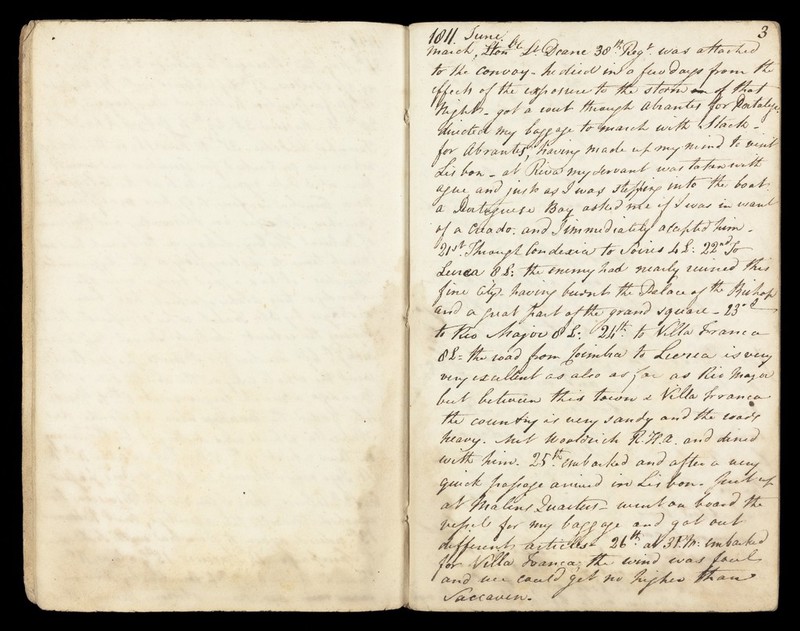 3
1811. June
march, Lt. Deane 38th Regt. was attached
to the convoy - he died in a few days from the
effects of the exposure to the storm of that
Night - got a rout through Abrantes for Portalegre
directed my baggage to march with Stack -
for Abrantes, having made up my mind to visit
Lisbon - at Riva my servant was taken with
ague and just as I was stepping into the boat
a Portuguese Boy asked me if I was in want
of a Criado. and I immediately accepted him -
21st. Through Condexia to Soires 4 L: 22nd To
Leirea 8 L: the enemy had nearly ruined this
fine City. having burnt the Palace of the Bishop
and a great part of the grand square - 23rd
to Rio Major 8 L: 24th: to Villa Franca
8 L - the road from Coimbra to Leirea is very
very excellent as also as far as Rio Major
but between this town & Villa Franca
the country is very sandy and the roads
heavy. Met Wooldrich R.H.A. and dined
with him. 25th. embarked and after a very
quick passage arrived in Lisbon. put up
at Malins Quarters - went on board the
vessels for my baggage and got out
different articles - 26th. at 3 P.M. embarked
for Villa Franca, the wind was foul
and we could get no higher than
Saccaven.